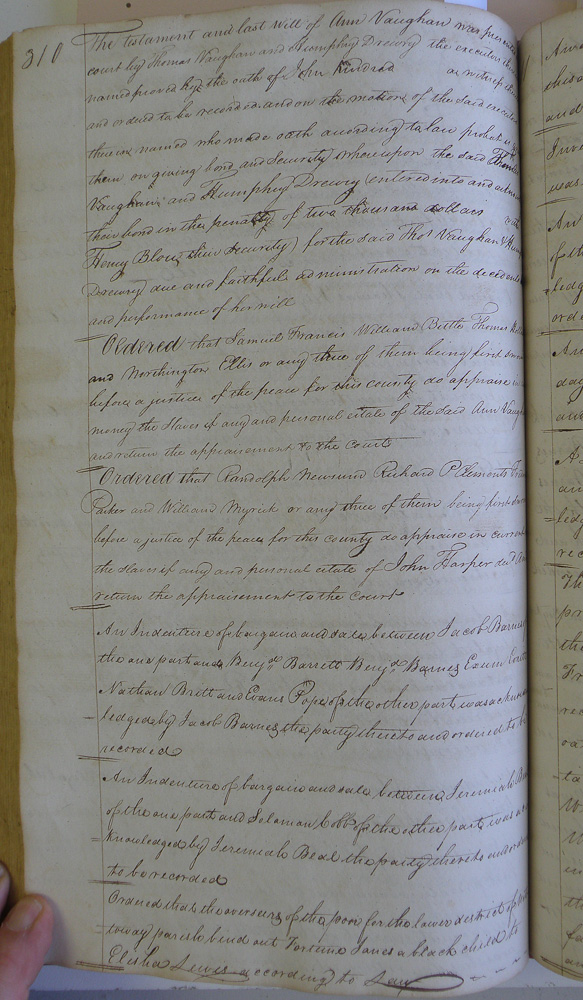 310
The testament and last Will of Ann Vaughan was presented
court by Thomas Vaughan and Humphry Drewry the executors
named proved by the oath of John Kindred as witness
and ordered to be recorded and on the motion of the said
therein named who made oath according to law probat is
them on giving bond and security whereupon the said
Vaughan and Humphry Drewry entered into and
their bond in the penalty of two thousand dollars with
Henry Blow their security) for the said Thos Vaughan &
Drewry due and faithful administration on the decedents
and performance of her will
Ordered that Samuel Francis William Bittle Thomas
and Northington Ellis or any three of them being first sworn
before a justice of the peace for this county do appraise in
money the Slaves if any and personal estate of the said Ann Vaughan
and return the appraisement to the Court
Ordered that Randolph Newsum Richard P Clements
Parker and William Myrick or any three of them being first sworn
before a justice of the peace for this county do appraise in current
the slaves if any and personal estate of John Harper decd and
return the appraisement to the Court
An Indenture of bargain and sale between Jacob Barnes
the one part and Benjn Barrett Benjn Barnes Exum
Nathan Britt and Evans Pope of the other part was acknow
ledged by Jacob Barnes the party thereto and ordered to be
recorded
An Indenture of bargain and sale between Jeremiah
of the one part and Solomon Cobb of the other part was ac
knowledged by Jeremiah Beal the party thereto and ordered
to be recorded
Ordered that the overseers of the poor for the lower district of
toway parish bind out Fortune Jones a black child to
Elisha Lewis according to Law